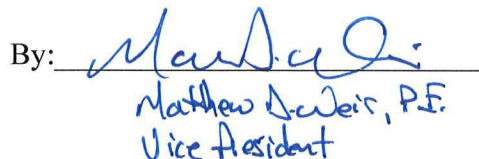 By:
Matthew D. Weir, P.E.
Vice President